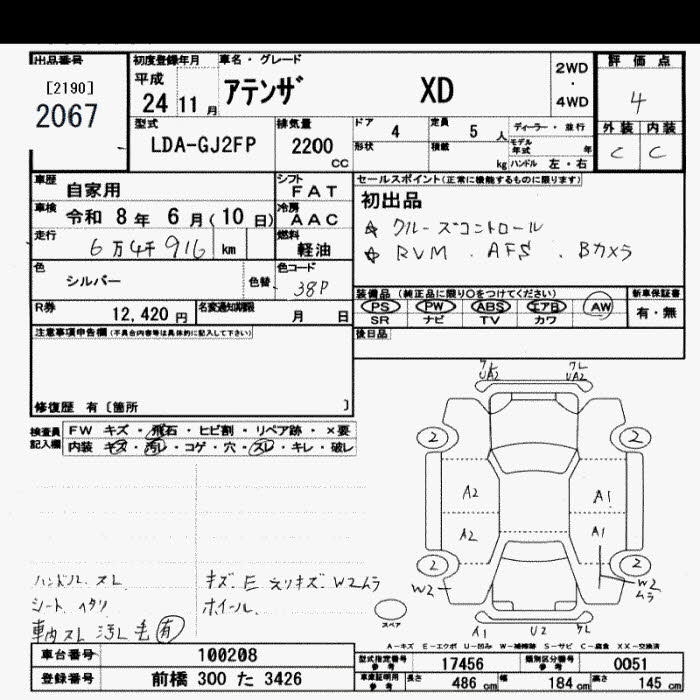 出品番号
[2190]
2067
初度登録年月
平成
24 11 月
車名・グレード
アテンザ XD
2WD
・
4WD
評価点
4
外装 内装
C C
型式
LDA-GJ2FP
排気量
2200 CC
ドア 4
定員 5 人
ディーラー・並行
形状
積載 kg
モデル年式 年
ハンドル 左・右
車歴 自家用
シフト FAT
車検 令和 8 年 6 月(10 日)
冷房 AAC
走行 6万4千916 km
燃料 軽油
セールスポイント(正常に機能するものに限ります)
初出品
☆ クルーズコントロール
☆ RVM . AFS . Bカメラ
色 シルバー
色替
色コード 38P
装備品(純正品に限り○をつけてください)
PS PW ABS エアB AW
SR ナビ TV カワ
新車保証書
有・無
R券 12,420 円
名変通知期限 月 日
後日品
注意事項申告欄(不具合内容等は具体的に記入して下さい)
修復歴 有〔箇所 〕
検査員記入欄
FW キズ・飛石・ヒビ割・リペア跡・×要
内装 キズ・汚レ・コゲ・穴・スレ・キレ・破レ
ワレ UA2
ワレ UA2
2 2
A2 A1
A2 A1
2 2
W2 W2ムラ
スペア
A1 U2 ワレ
ハンドル スレ
シート ヘタリ
車内スレ 汚レ 毛 有
キズ. E エリキズ. W2ムラ
ホイール.
A-キズ E-エクボ U-凹み W-補修跡 S-サビ C-腐食 XX-交換済
車台番号 100208
登録番号 前橋 300 た 3426
型式指定番号 参考 17456
類別区分番号 参考 0051
車庫証明用 参考 長さ 486 cm 幅 184 cm 高さ 145 cm